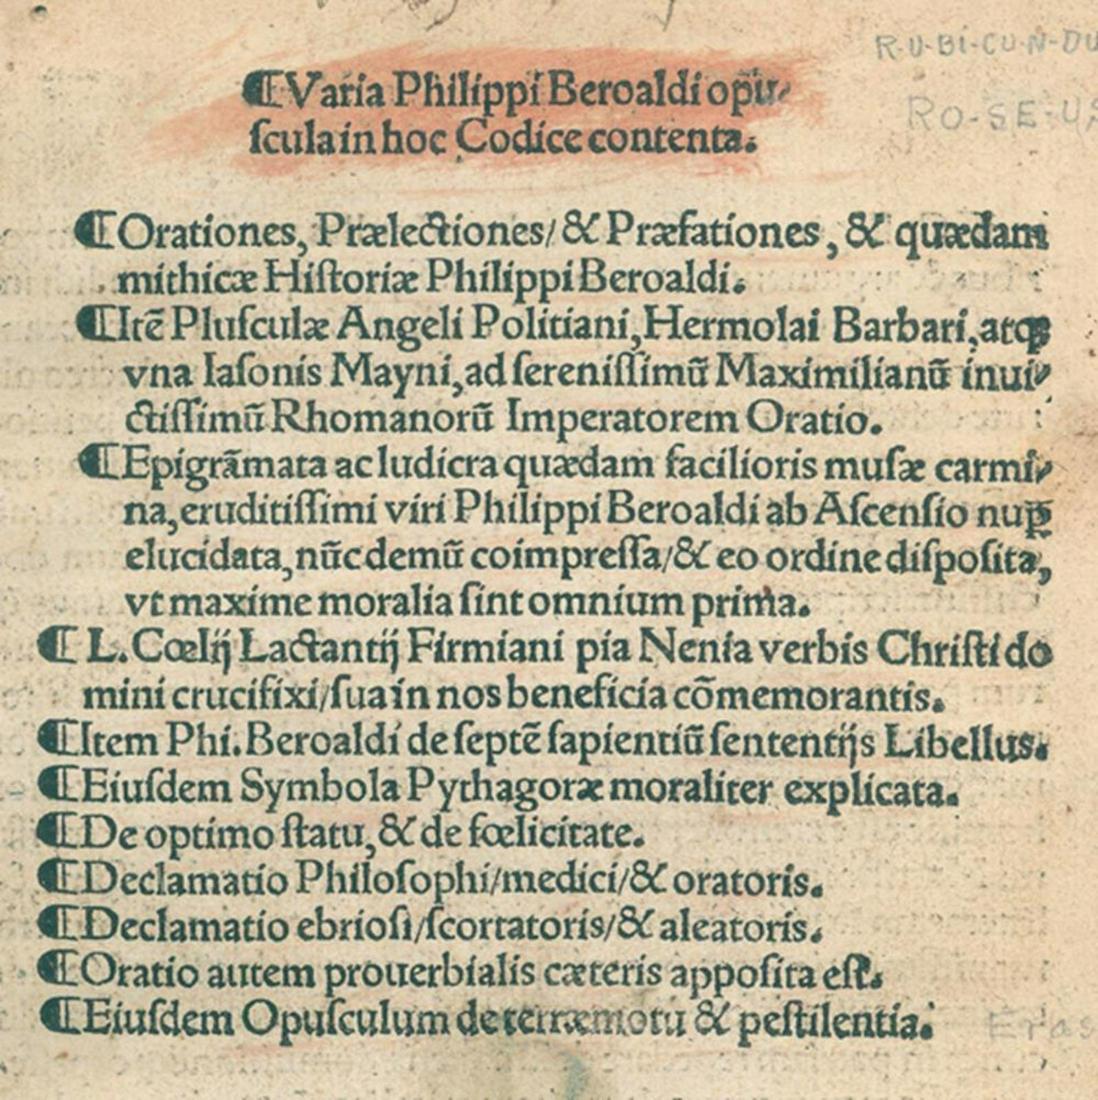 R-U-BI-CU-N-DU
RO-SE-US
⸿Varia Philippi Beroaldi opu⸗
ſcula in hoc Codice contenta.
⸿Orationes, Prælectiones/ & Præfationes, & quædam
mithicæ Hiſtoriæ Philippi Beroaldi.
⸿Itẽ Pluſculæ Angeli Politiani, Hermolai Barbari, atqꝫ
vna Iaſonis Mayni, ad ſereniſſimũ Maximilianũ inui⸗
ctiſſimũ Rhomanorũ Imperatorem Oratio.
⸿Epigrãmata ac ludicra quædam facilioris muſæ carmi⸗
na, eruditiſſimi viri Philippi Beroaldi ab Aſcenſio nuꝑ
elucidata, nũc demũ coimpreſſa/ & eo ordine diſpoſita,
vt maxime moralia ſint omnium prima.
⸿ L. Cœlij Lactantij Firmiani pia Nenia verbis Chriſti do
mini crucifixi/ ſua in nos beneficia cõmemorantis.
⸿Item Phi. Beroaldi de ſeptẽ ſapientiũ ſententijs Libellus.
⸿Eiuſdem Symbola Pythagoræ moraliter explicata.
⸿De optimo ſtatu, & de fœlicitate.
⸿Declamatio Philoſophi/medici/& oratoris.
⸿Declamatio ebrioſi/ſcortatoris/& aleatoris.
⸿Oratio autem prouerbialis cæteris appoſita eſt.
⸿Eiuſdem Opuſculum de terræmotu & peſtilentia.
Eras